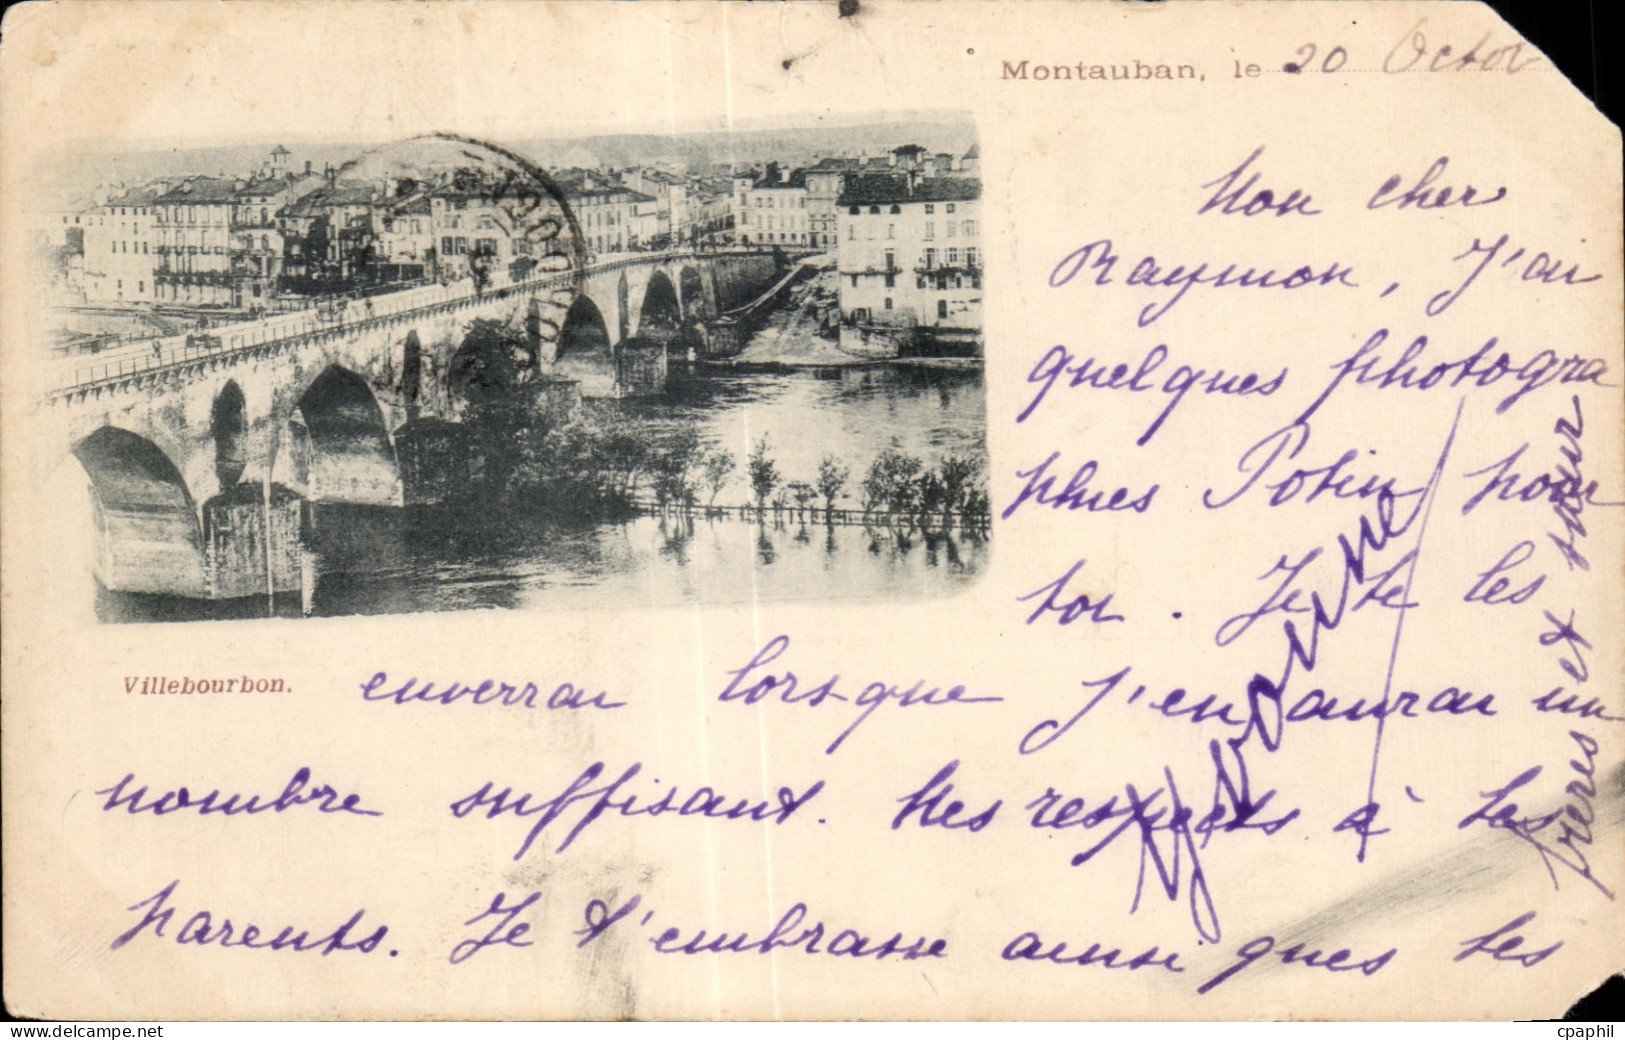 Montauban, le 20 Octo
Mon cher
Raymon, J'ai
quelques photogra
phies Potin pour
toi. Je te les
Villebourbon.
enverrai lorsque j'en aurai un
nombre suffisant. Mes respects à tes
parents. Je t'embrasse ainsi ques tes
freres et sœur
Yvonne
cpaphil